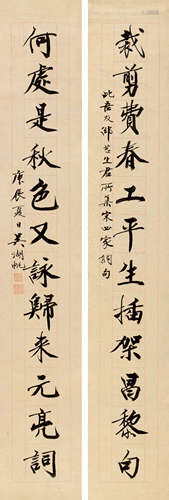 裁剪費春工平生插架昌黎句
此吾友鄒芝生君所集宋四家詞句
何處是秋色又詠歸来元亮詞
庚辰夏日吳湖帆